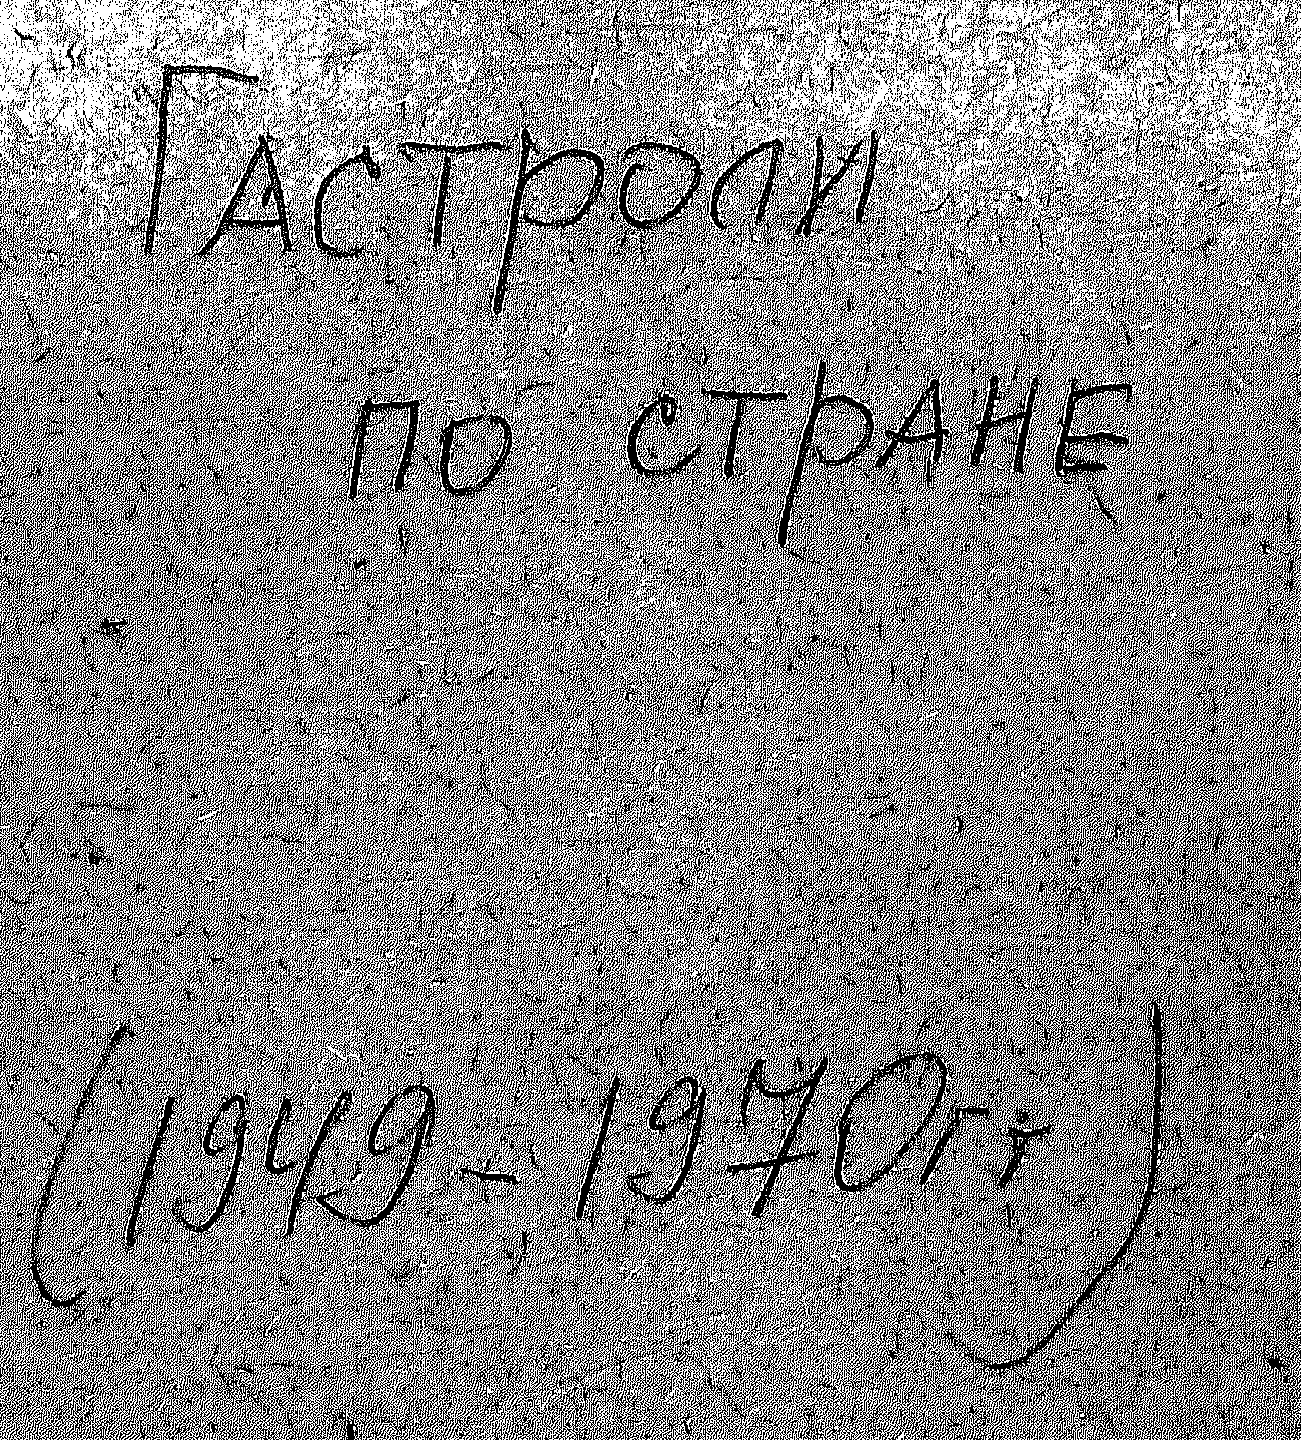 Гастроли
по стране
(1949-1970гг)